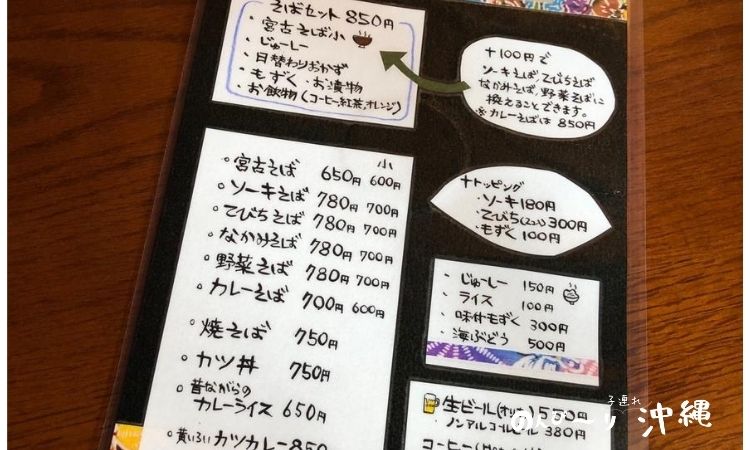 そばセット 850円
・宮古そば小
・じゅーしー
・日替わりおかず
・もずく・お漬物
・お飲物(コーヒー、紅茶、オレンジ)
+100円で
ソーキそば、てびちそば
なかみそば、野菜そばに
換えることできます。
※カレーそばは 850円
小
宮古そば 650円 600円
ソーキそば 780円 700円
てびちそば 780円 700円
なかみそば 780円 700円
野菜そば 780円 700円
カレーそば 700円 600円
焼そば 750円
カツ丼 750円
昔ながらの
カレーライス 650円
黄いろい カツカレー 850
+トッピング
・ソーキ 180円
・てびち(2コ) 300円
・もずく 100円
・じゅーしー 150円
・ライス 100円
・味付もずく 300円
・海ぶどう 500円
生ビール(オリ
・ノンアルコールビール 380円
コーヒー
子連れ
のんび〜り 沖縄